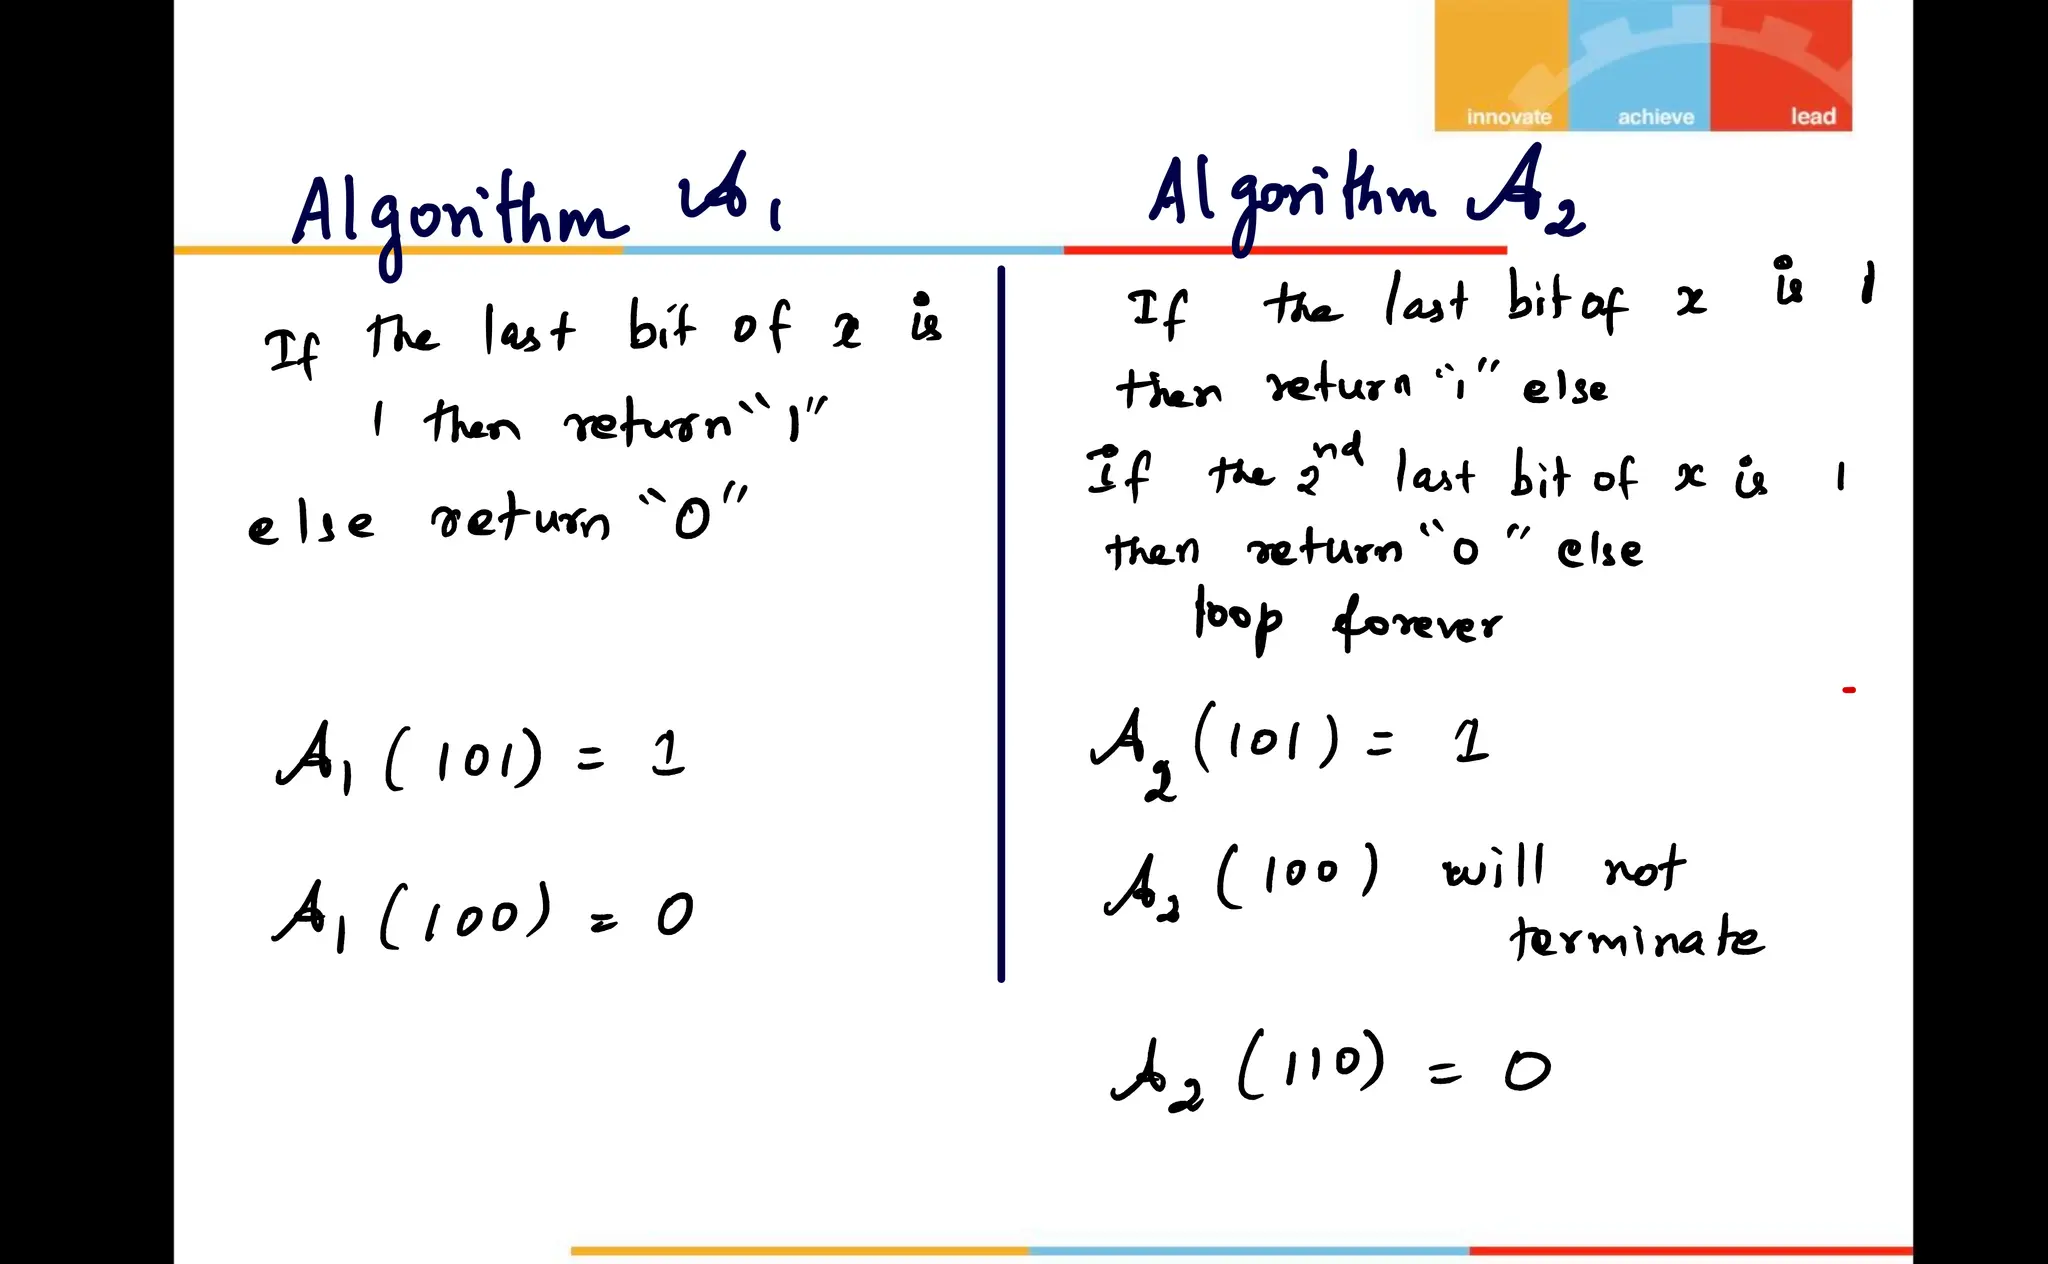 innovate achieve lead
Algorithm A₁
If the last bit of x is
1 then return "1"
else return "0"
A₁ (101) = 1
A₁ (100) = 0
Algorithm A₂
If the last bit of x is 1
then return "1" else
If the 2nd last bit of x is 1
then return "0" else
loop forever
A₂ (101) = 1
A₂ (100) will not
terminate
A₂ (110) = 0